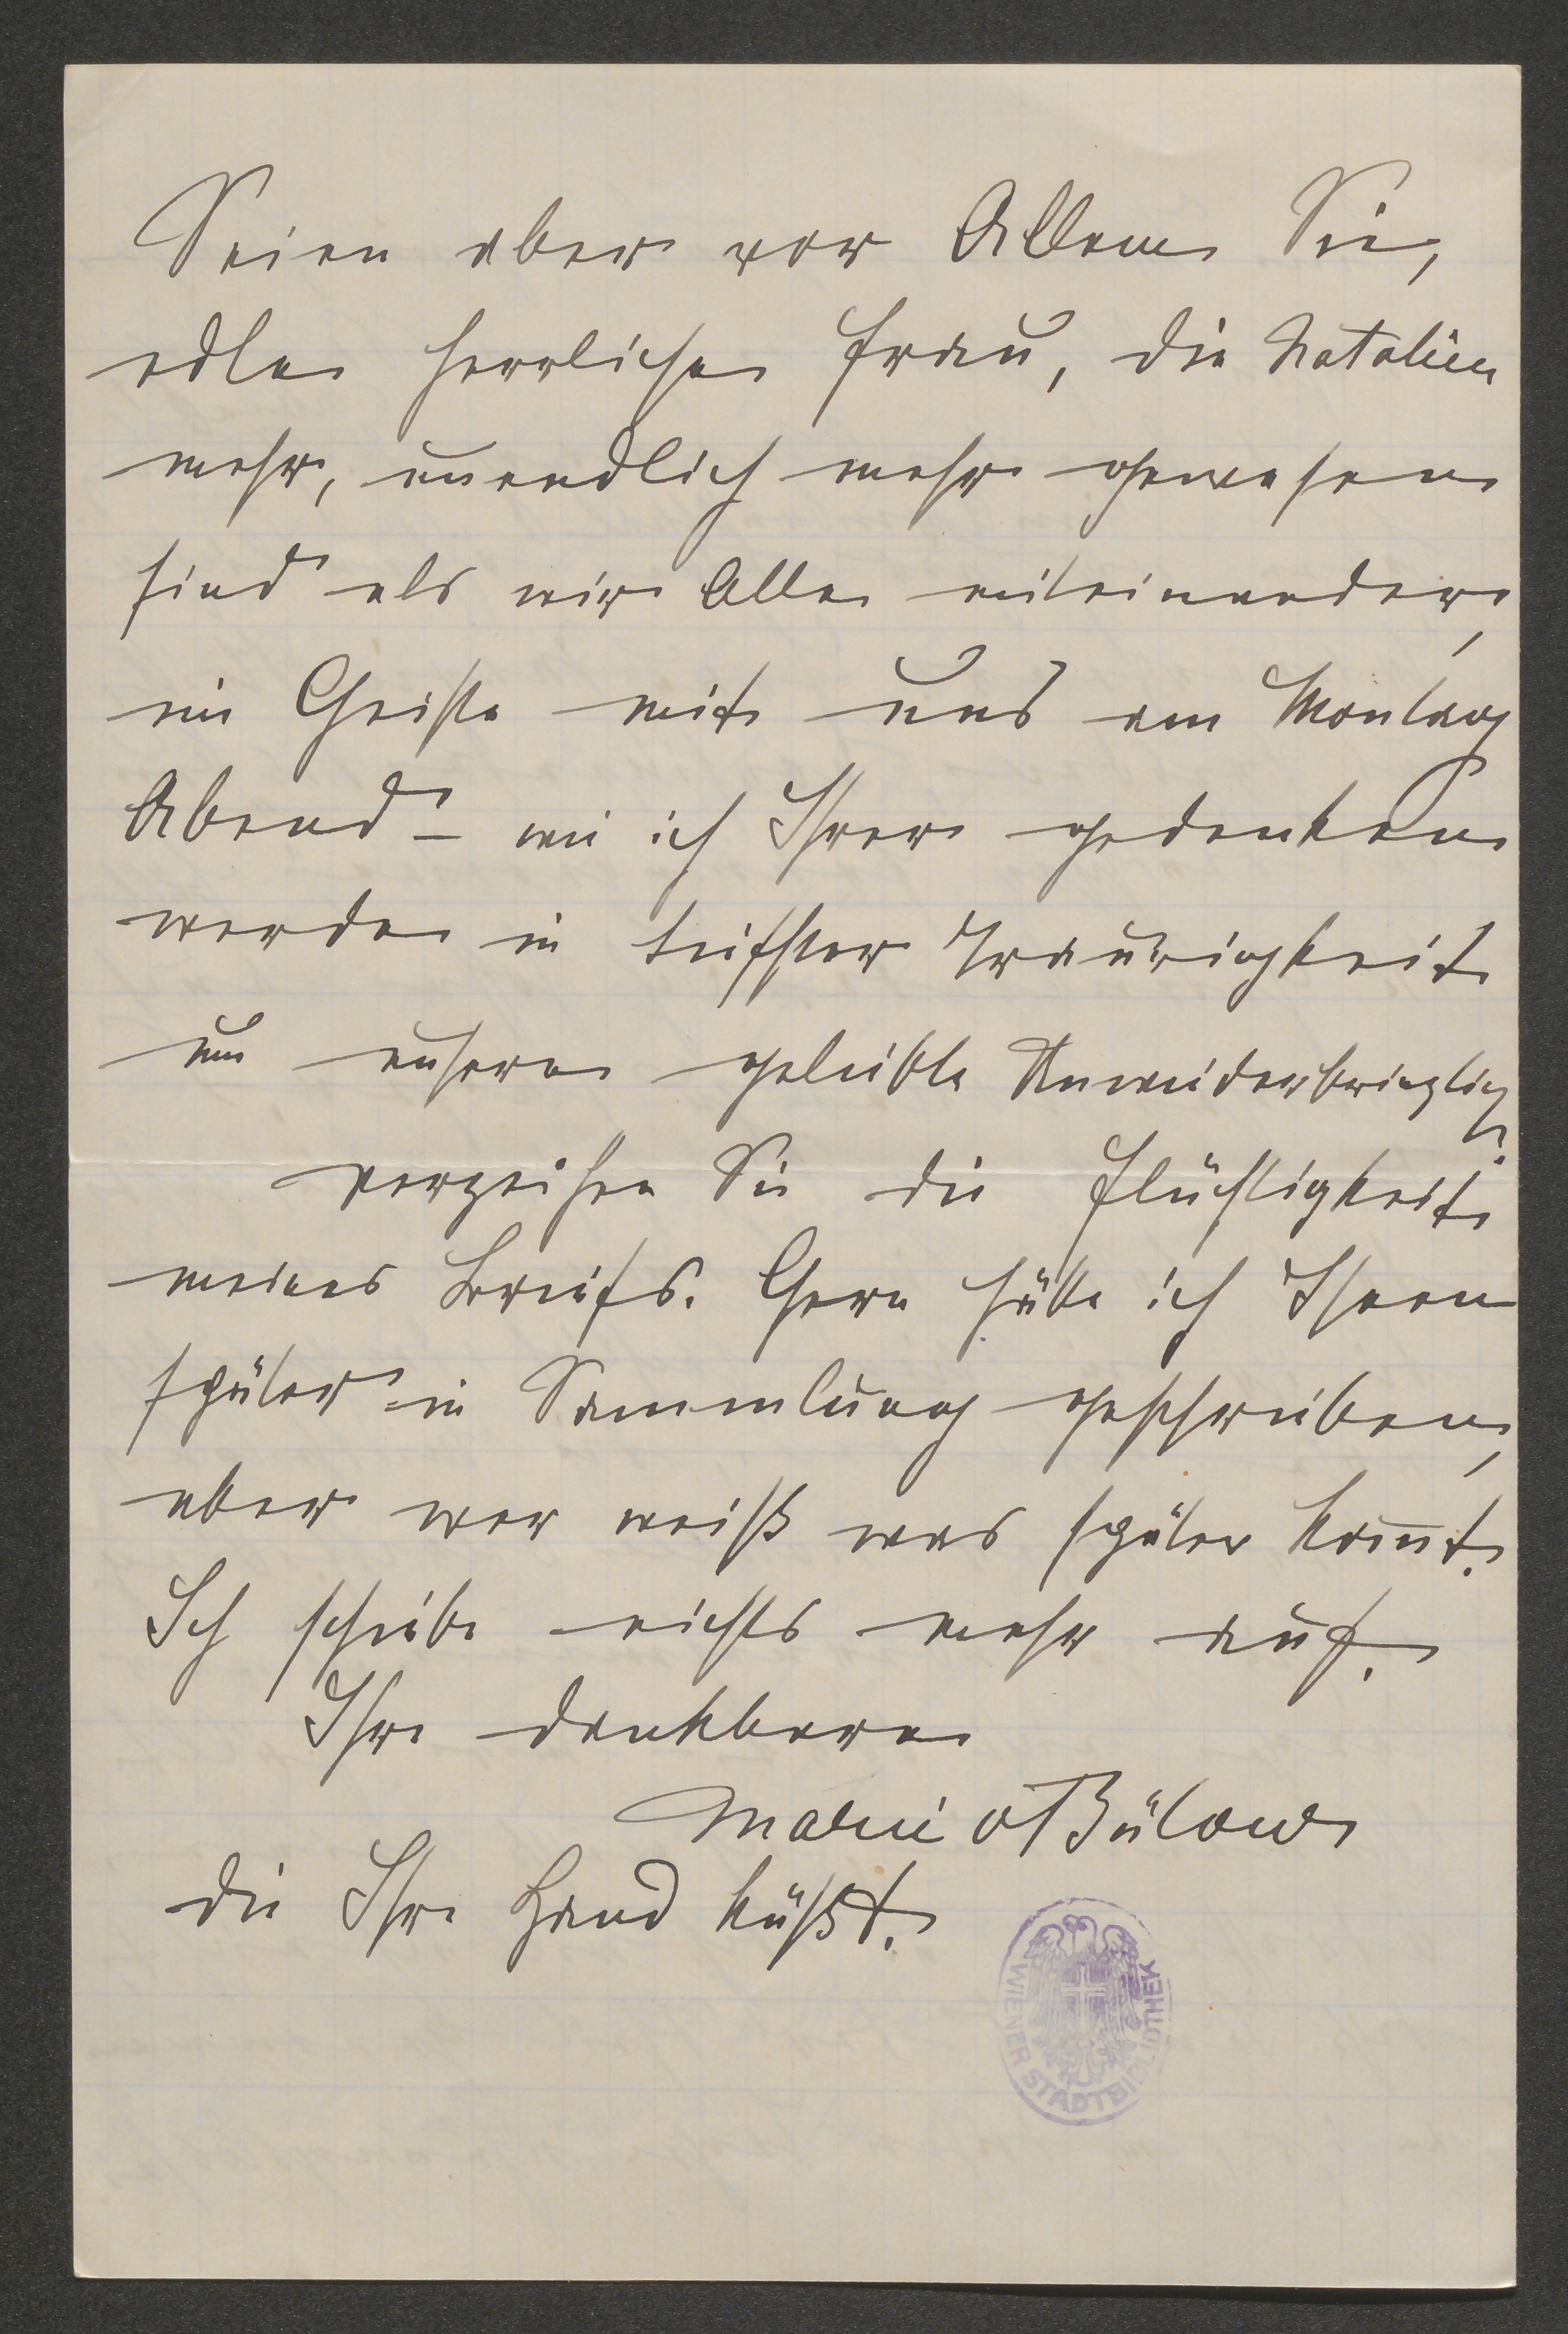 Seien aber vor Allem Sie,
edle herrliche Frau, die Natalien
mehr, unendlich mehr gewesen
sind als wir Alle miteinander,
im Geiste mit uns am Montag
Abend – wie ich Ihrer gedenken
werde in tiefster Traurigkeit
um unsere geliebte Unwiederbringlich
verzeihen Sie die Flüchtigkeit
meines Briefs. Gern hätte ich Ihnen
später in Sammlung geschrieben,
aber wer weiß was später kom̅t.
Ich schiebe nichts mehr auf.
Ihre dankbare
Marie v Bülow
die Ihre Hand küßt.
WIENER STADTBIBLIOTHEK